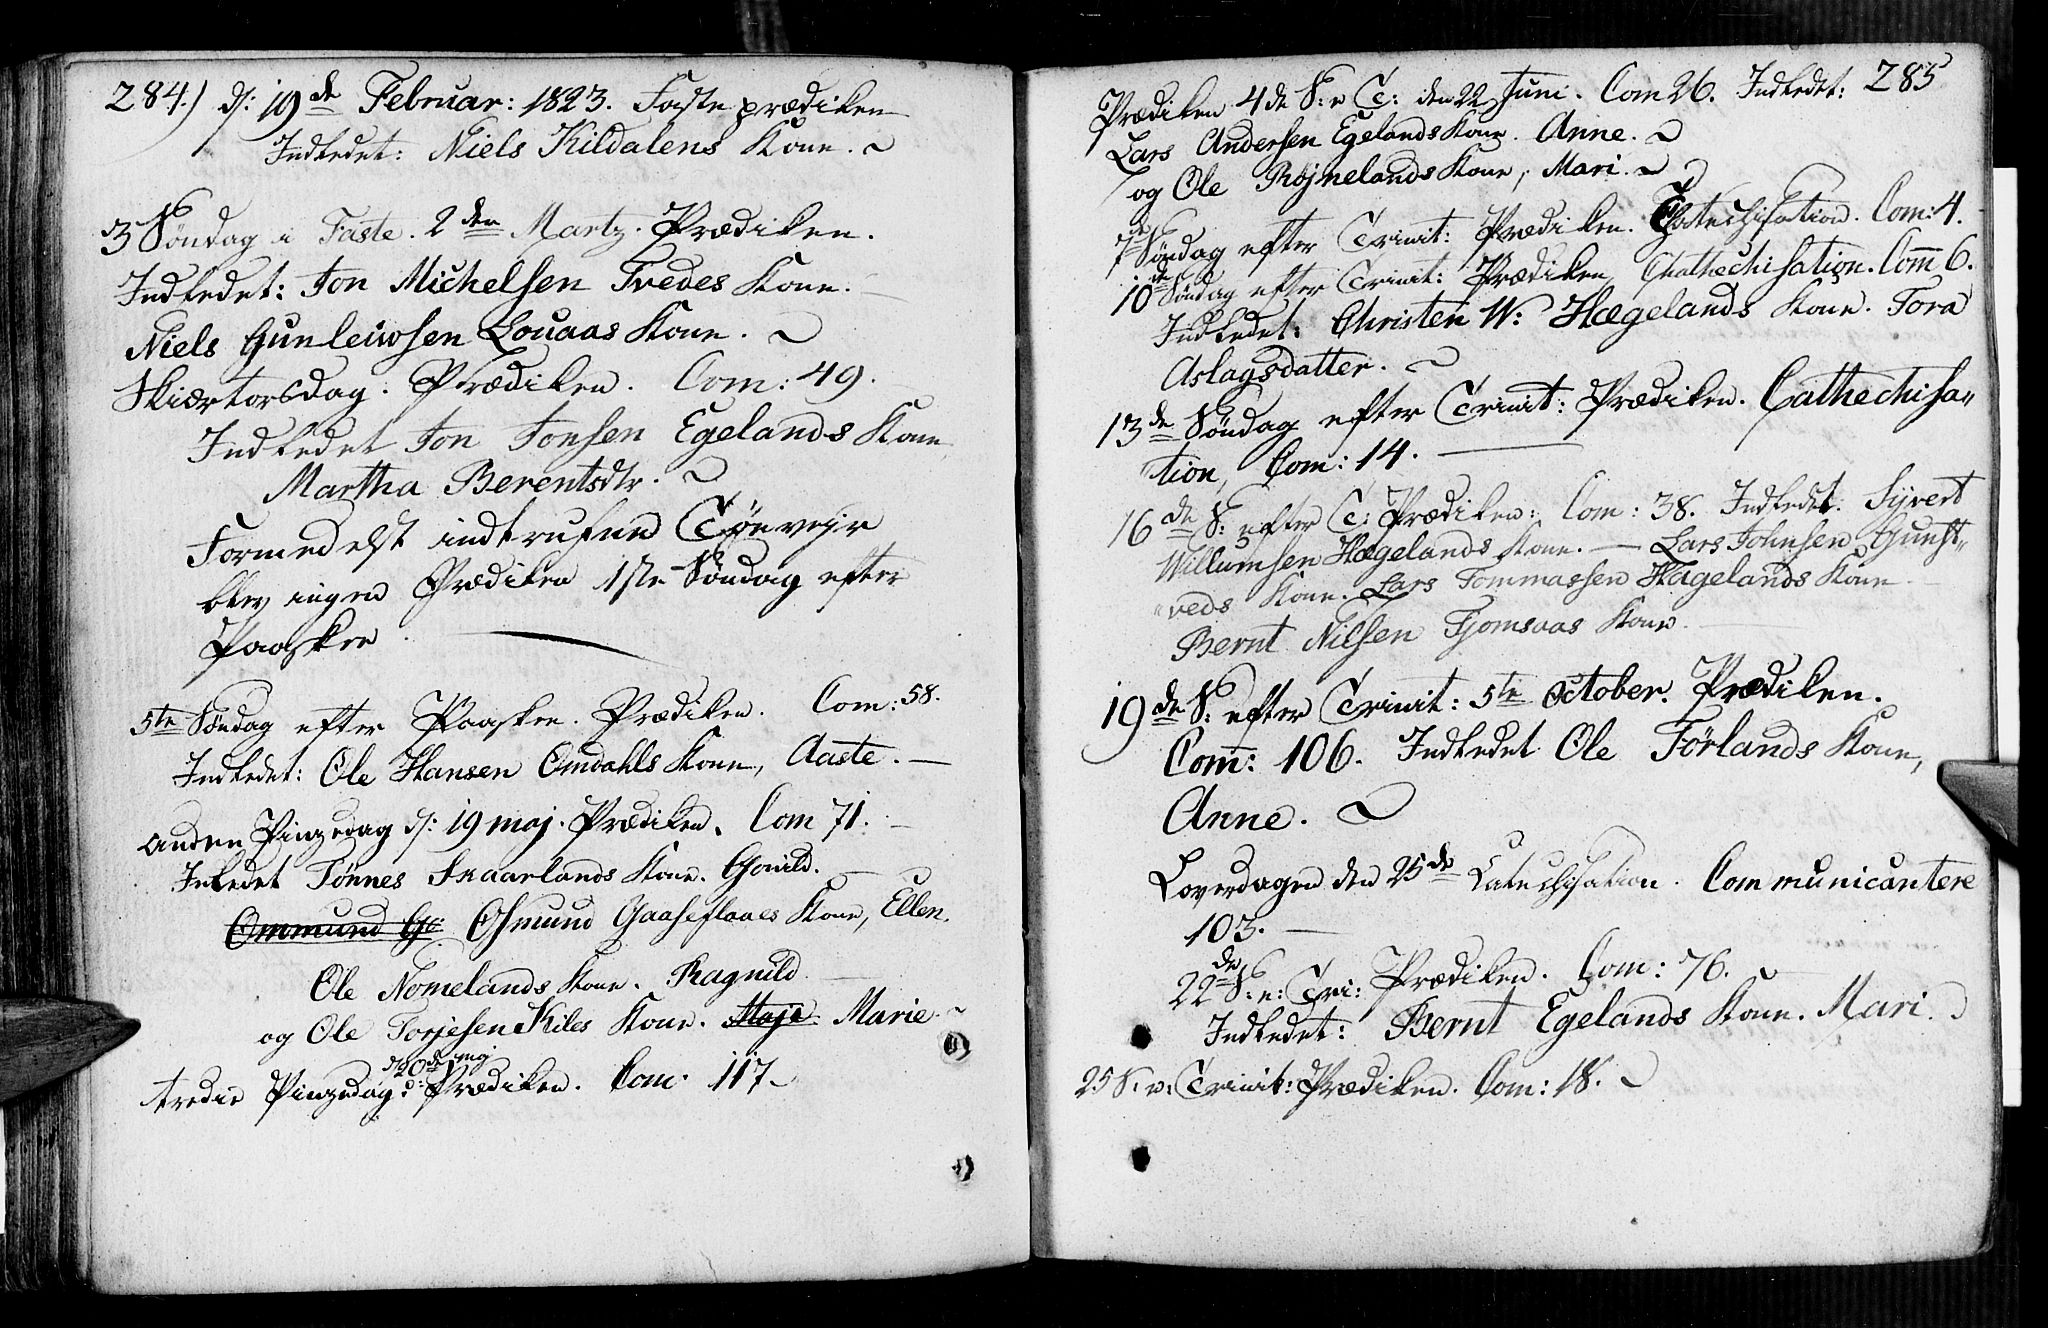 284.) d: 19de Februar: 1823. Faste prædiken
Indledet: Niels Kildalens Kone.
3 Søndag i Faste. 2den Martz. Prædiken.
Indledet: Jon Michelsen Tvedes Kone.
Niels Gunleiwsen Louaas Kone.
Skiærtorsdag. Prædiken. Com: 49.
Indledet Jon Jonsen Egelands Kone
Martha Berentsdtr.
Formedelst indtrufne Tøevejr
blev ingen Prædiken 1ste Søndag efter
Paaske.
5te Søndag efter Paaske. Prædiken. Com: 58.
Indledet: Ole Hansen Omdahls Kone, Aaste.
anden Pinzedag d: 19 maj. Prædiken. Com 71.
Inledet Tønnes Skaarlands Kone. Gonild.
Ommund G: Osmund Gaaseflaaes Kone, Ellen.
Ole Nomelands Kone. Ragnild
og Ole Torjesen Kiles Kone. Maja Marie
d: 20de maj
tredie Pinzedag. Prædiken. Com. 117
285
Prædiken 4de S: e T: den 22 Juni. Com 26. Indledet:
Lars Andersen Egelands Kone. Anne.
og Ole Røjnelands Kone, Mari.
7de Søndag efter Trinit: Prædiken. Chatechisation. Com: 4.
10de Søndag efter Trinit: Prædiken Chathechisation. Com̄ 6.
Indledet: Christen W: Hægelands Kone. Tora
Aslagsdatter.
13de Søndag efter Trinit: Prædiken. Cathechisa„
„tion, Com: 14.
16de S: efter T: Prædiken: Com: 38. Indledet: Syvert
Willumsen Hægelands Kone. — Lars Johnsen Gunst„
„veds Kone. Lars Tommassen Hægelands Kone.
Bernt Nilsen Fjomsaas Kone.
19de S: efter Trinit: 5te October. Prædiken.
Com̄: 106. Indledet Ole Førlands Kone,
Anne.
Loverdagen den 25de Catechisation. Communicantere
103.
22de S: e: Tri: Prædiken. Com: 76.
Indledet: Bernt Egelands Kone. Mari.
25 S. e: Trinit: Prædiken. Com: 18.